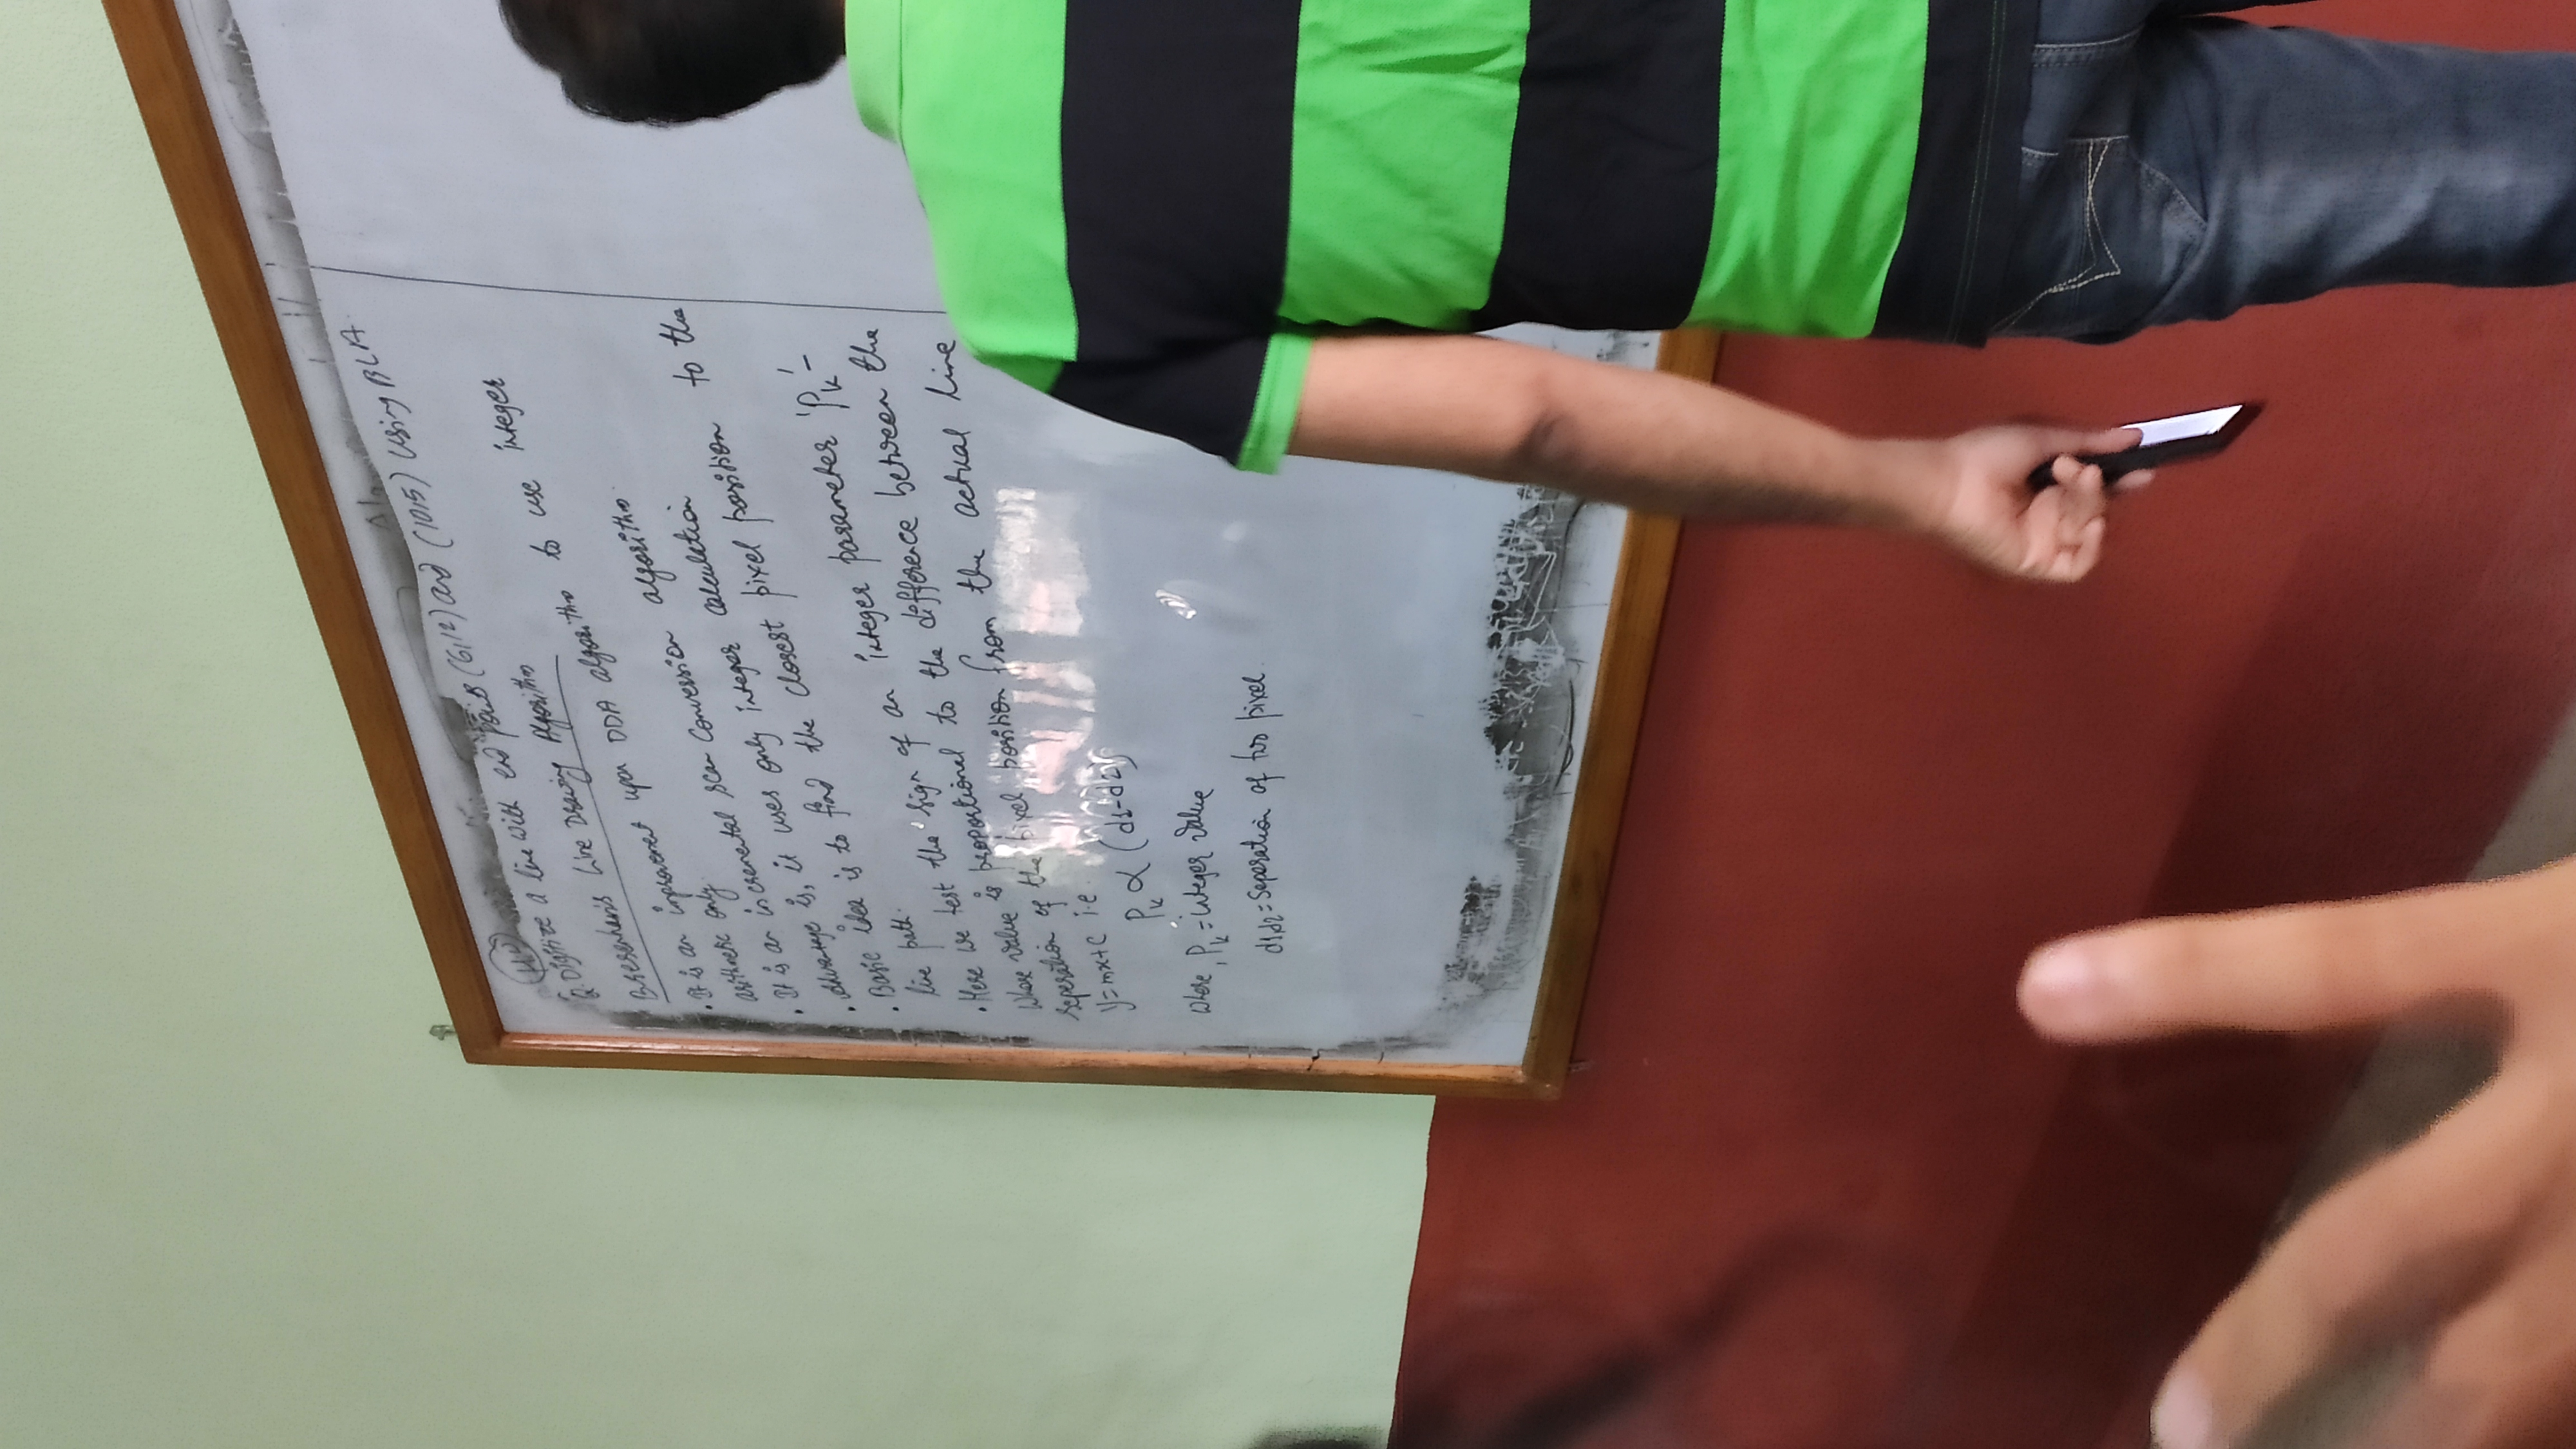 H.W
Q. Digitize a line with end points (6,12) and (10,5) using BLA
Bresenham's Line Drawing Algorithm
• It is an improvement upon DDA algorithm to use integer
arithmetic only.
• It is an incremental scan conversion algorithm
• Advantage is, it uses only integer calculation
• Basic idea is to find the closest pixel position to the
line path.
• Here we test the sign of an integer parameter 'Pk'-
whose value is proportional to the difference between the
seperation of the pixel position from the actual line
y=mx+c i.e
Pk ∝ (d1-d2)
where, Pk = integer value
d1,d2 = Seperation of two pixel.